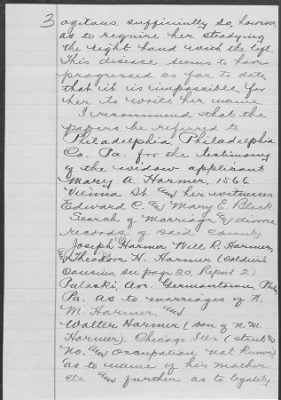 3 agitans, sufficiently so, however
as to require her steadying
the right hand with the left.
This disease seems to have
progressed so far to date
that it is impossible for
her to write her name.
I recommend that the
papers be referred to
Philadelphia, Philadelphia
Co. Pa. for the testimony
of the widow applicant
Mary A. Harmer, 1566
Vienna St. and her witnesses
Edward C. & Mary E. Black
Search of Marriage & divorce
records of said county.
Joseph Harmer, Will R. Harmer,
& Theodore H. Harmer (soldier's
cousins see page 20, Report 2)
Pulaski, Ave. Germantown, Phila
Pa. as to marriages of N.
M. Harmer, and
Walter Harmer (son of N. M.
Harmer). Chicago Ills (street &
No. and occupation not known)
as to name of his mother
etc and further as to legality